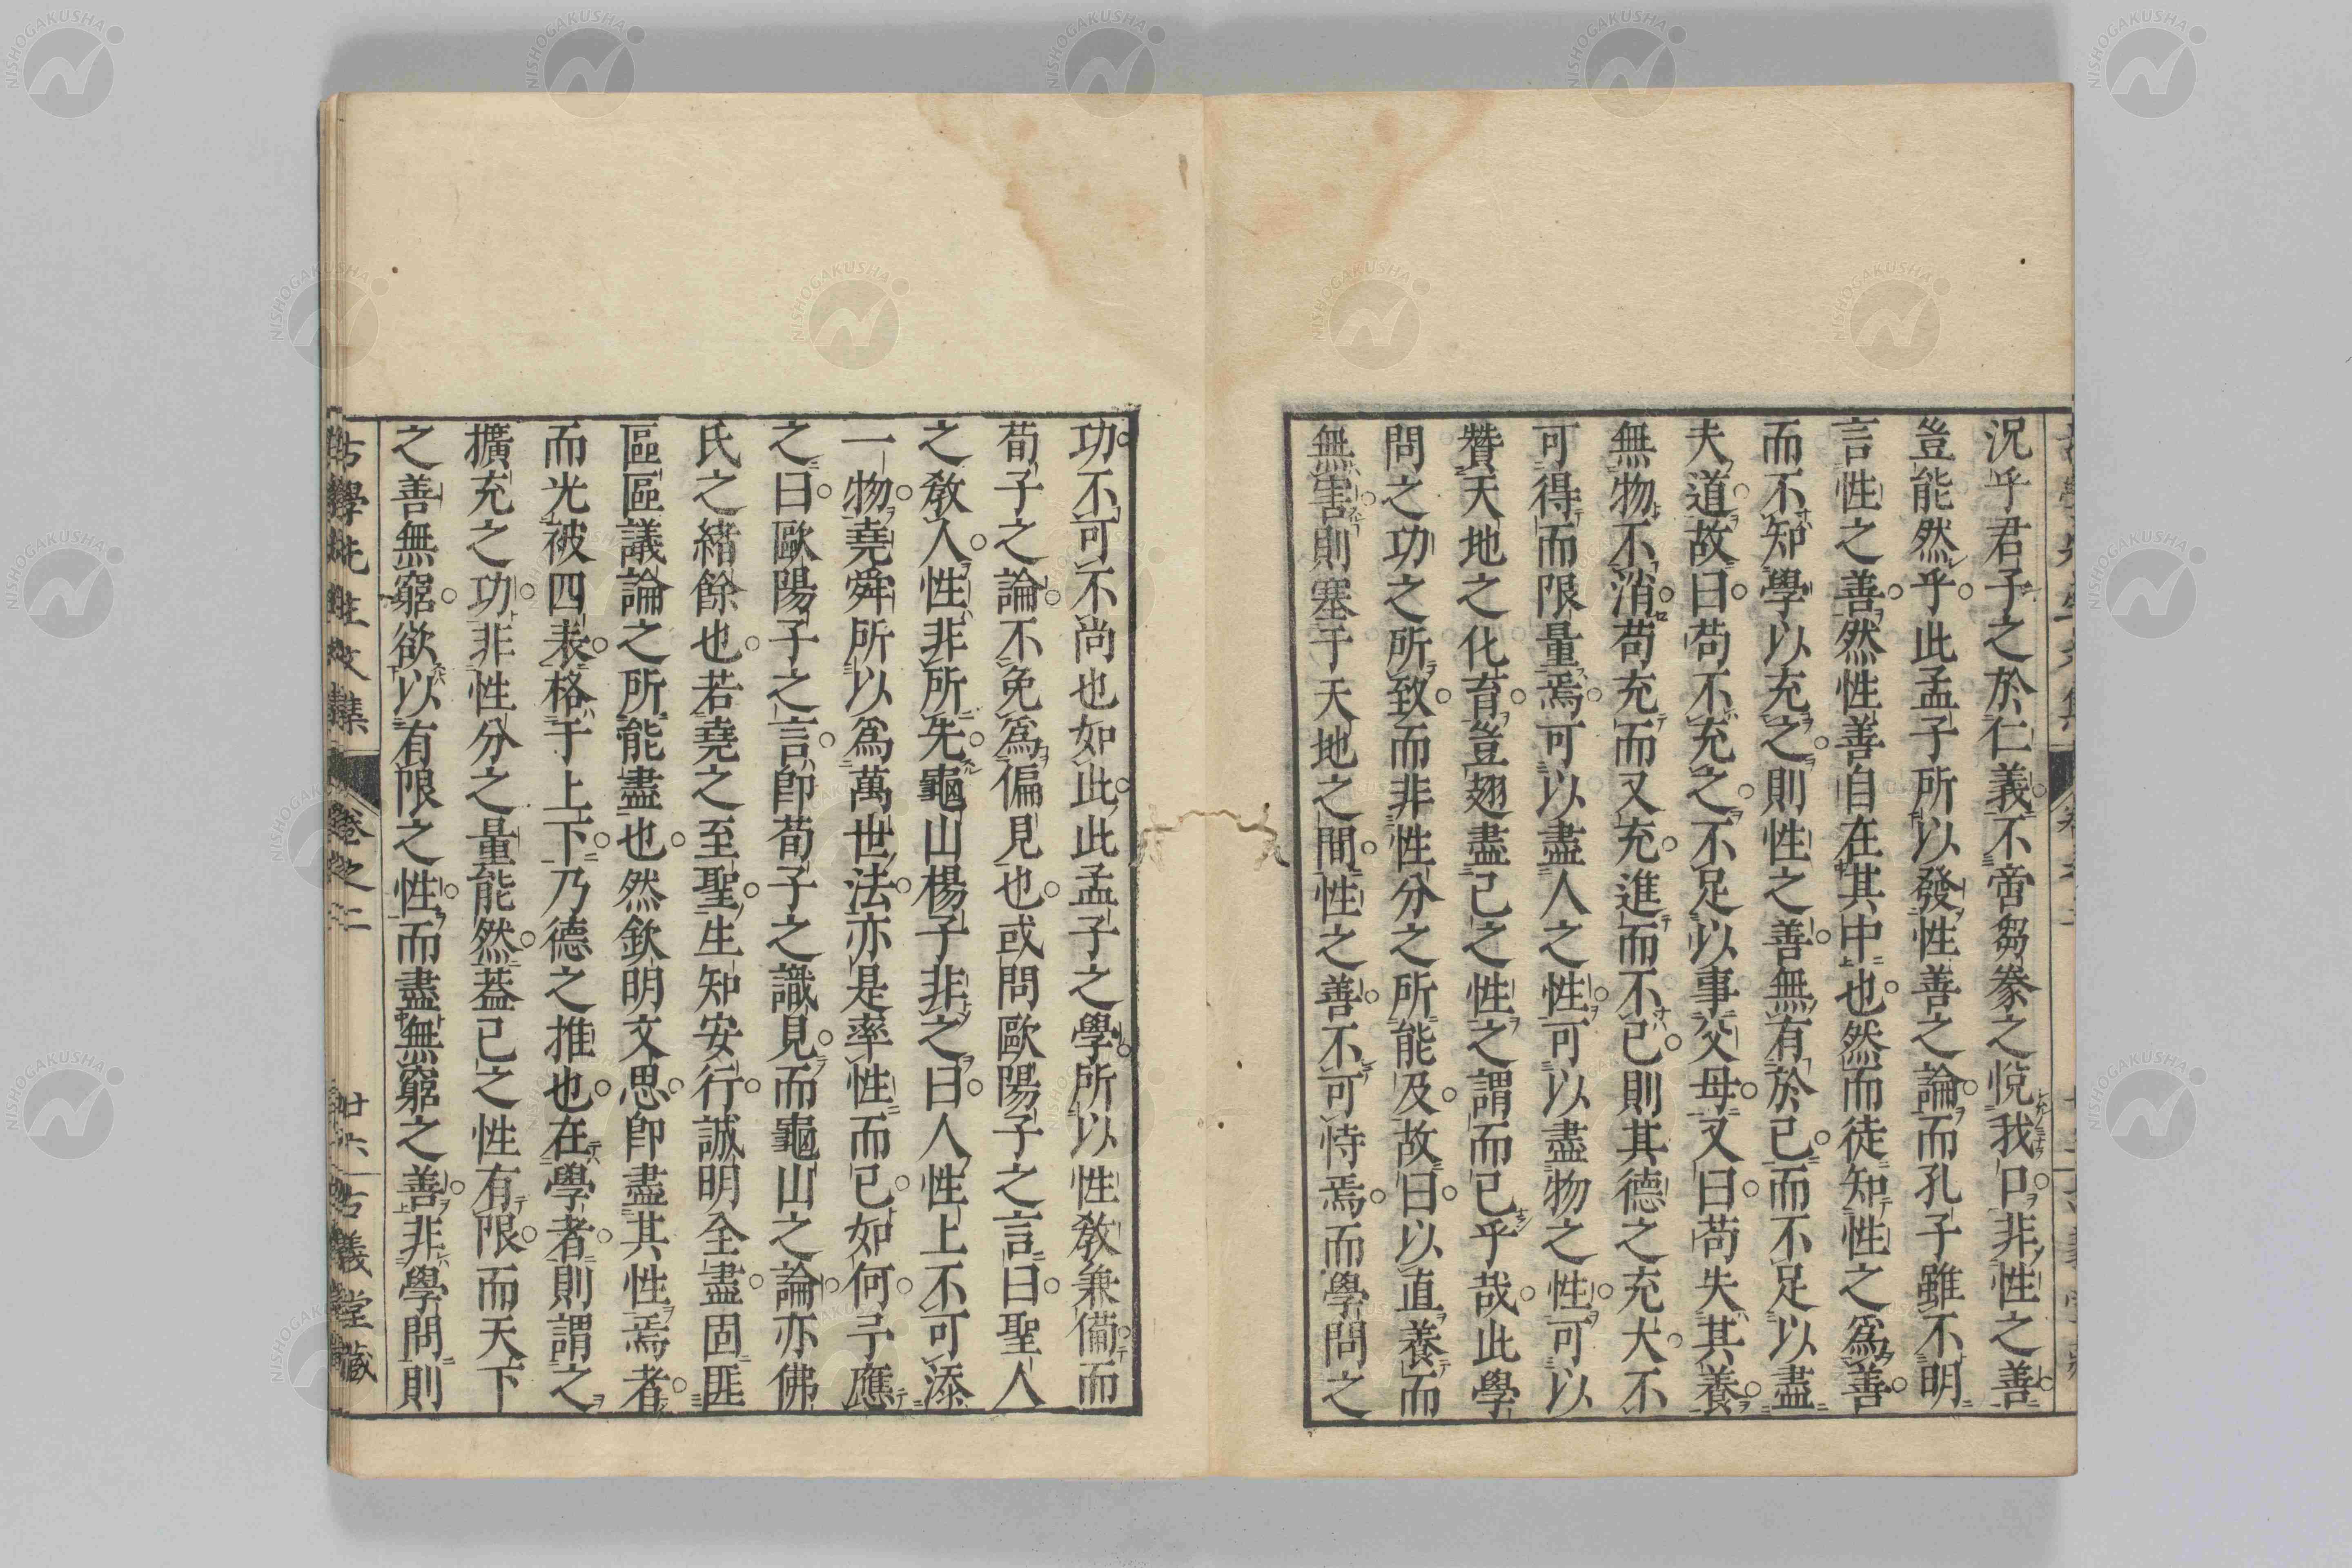 況乎君子之於仁義不啻芻豢之悅我口非性之善
豈能然乎此孟子所以發性善之論而孔子雖不明
言性之善然性善自在其中也然而徒知性之爲善
而不知學以充之則性之善無有於己而不足以盡
夫道故曰苟不充之不足以事父母又曰苟失其養
無物不消苟充而又充進而不已則其德之充大不
可得而限量焉可以盡人之性可以盡物之性可以
贊天地之化育豈翅盡己之性之謂而已乎哉此學
問之功之所致而非性分之所能及故曰以直養而
無害則塞于天地之間性之善不可恃焉而學問之
功不可不尚也如此此孟子之學所以性敎兼備而
荀子之論不免爲偏見也或問歐陽子之言曰聖人
之敎人性非所先龜山楊子非之曰人性上不可添
一物堯舜所以爲萬世法亦是率性而已如何予應
之曰歐陽子之言卽荀子之識見而龜山之論亦佛
氏之緒餘也若堯之至聖生知安行誠明全盡固匪
區區議論之所能盡也然欽明文思卽盡其性焉者
而光被四表格于上下乃德之推也在學者則謂之
擴充之功非性分之量能然蓋己之性有限而天下
之善無窮欲以有限之性而盡無窮之善非學問則
古學先生文集 卷之二 廿六 古義堂藏
NISHOGAKUSHA